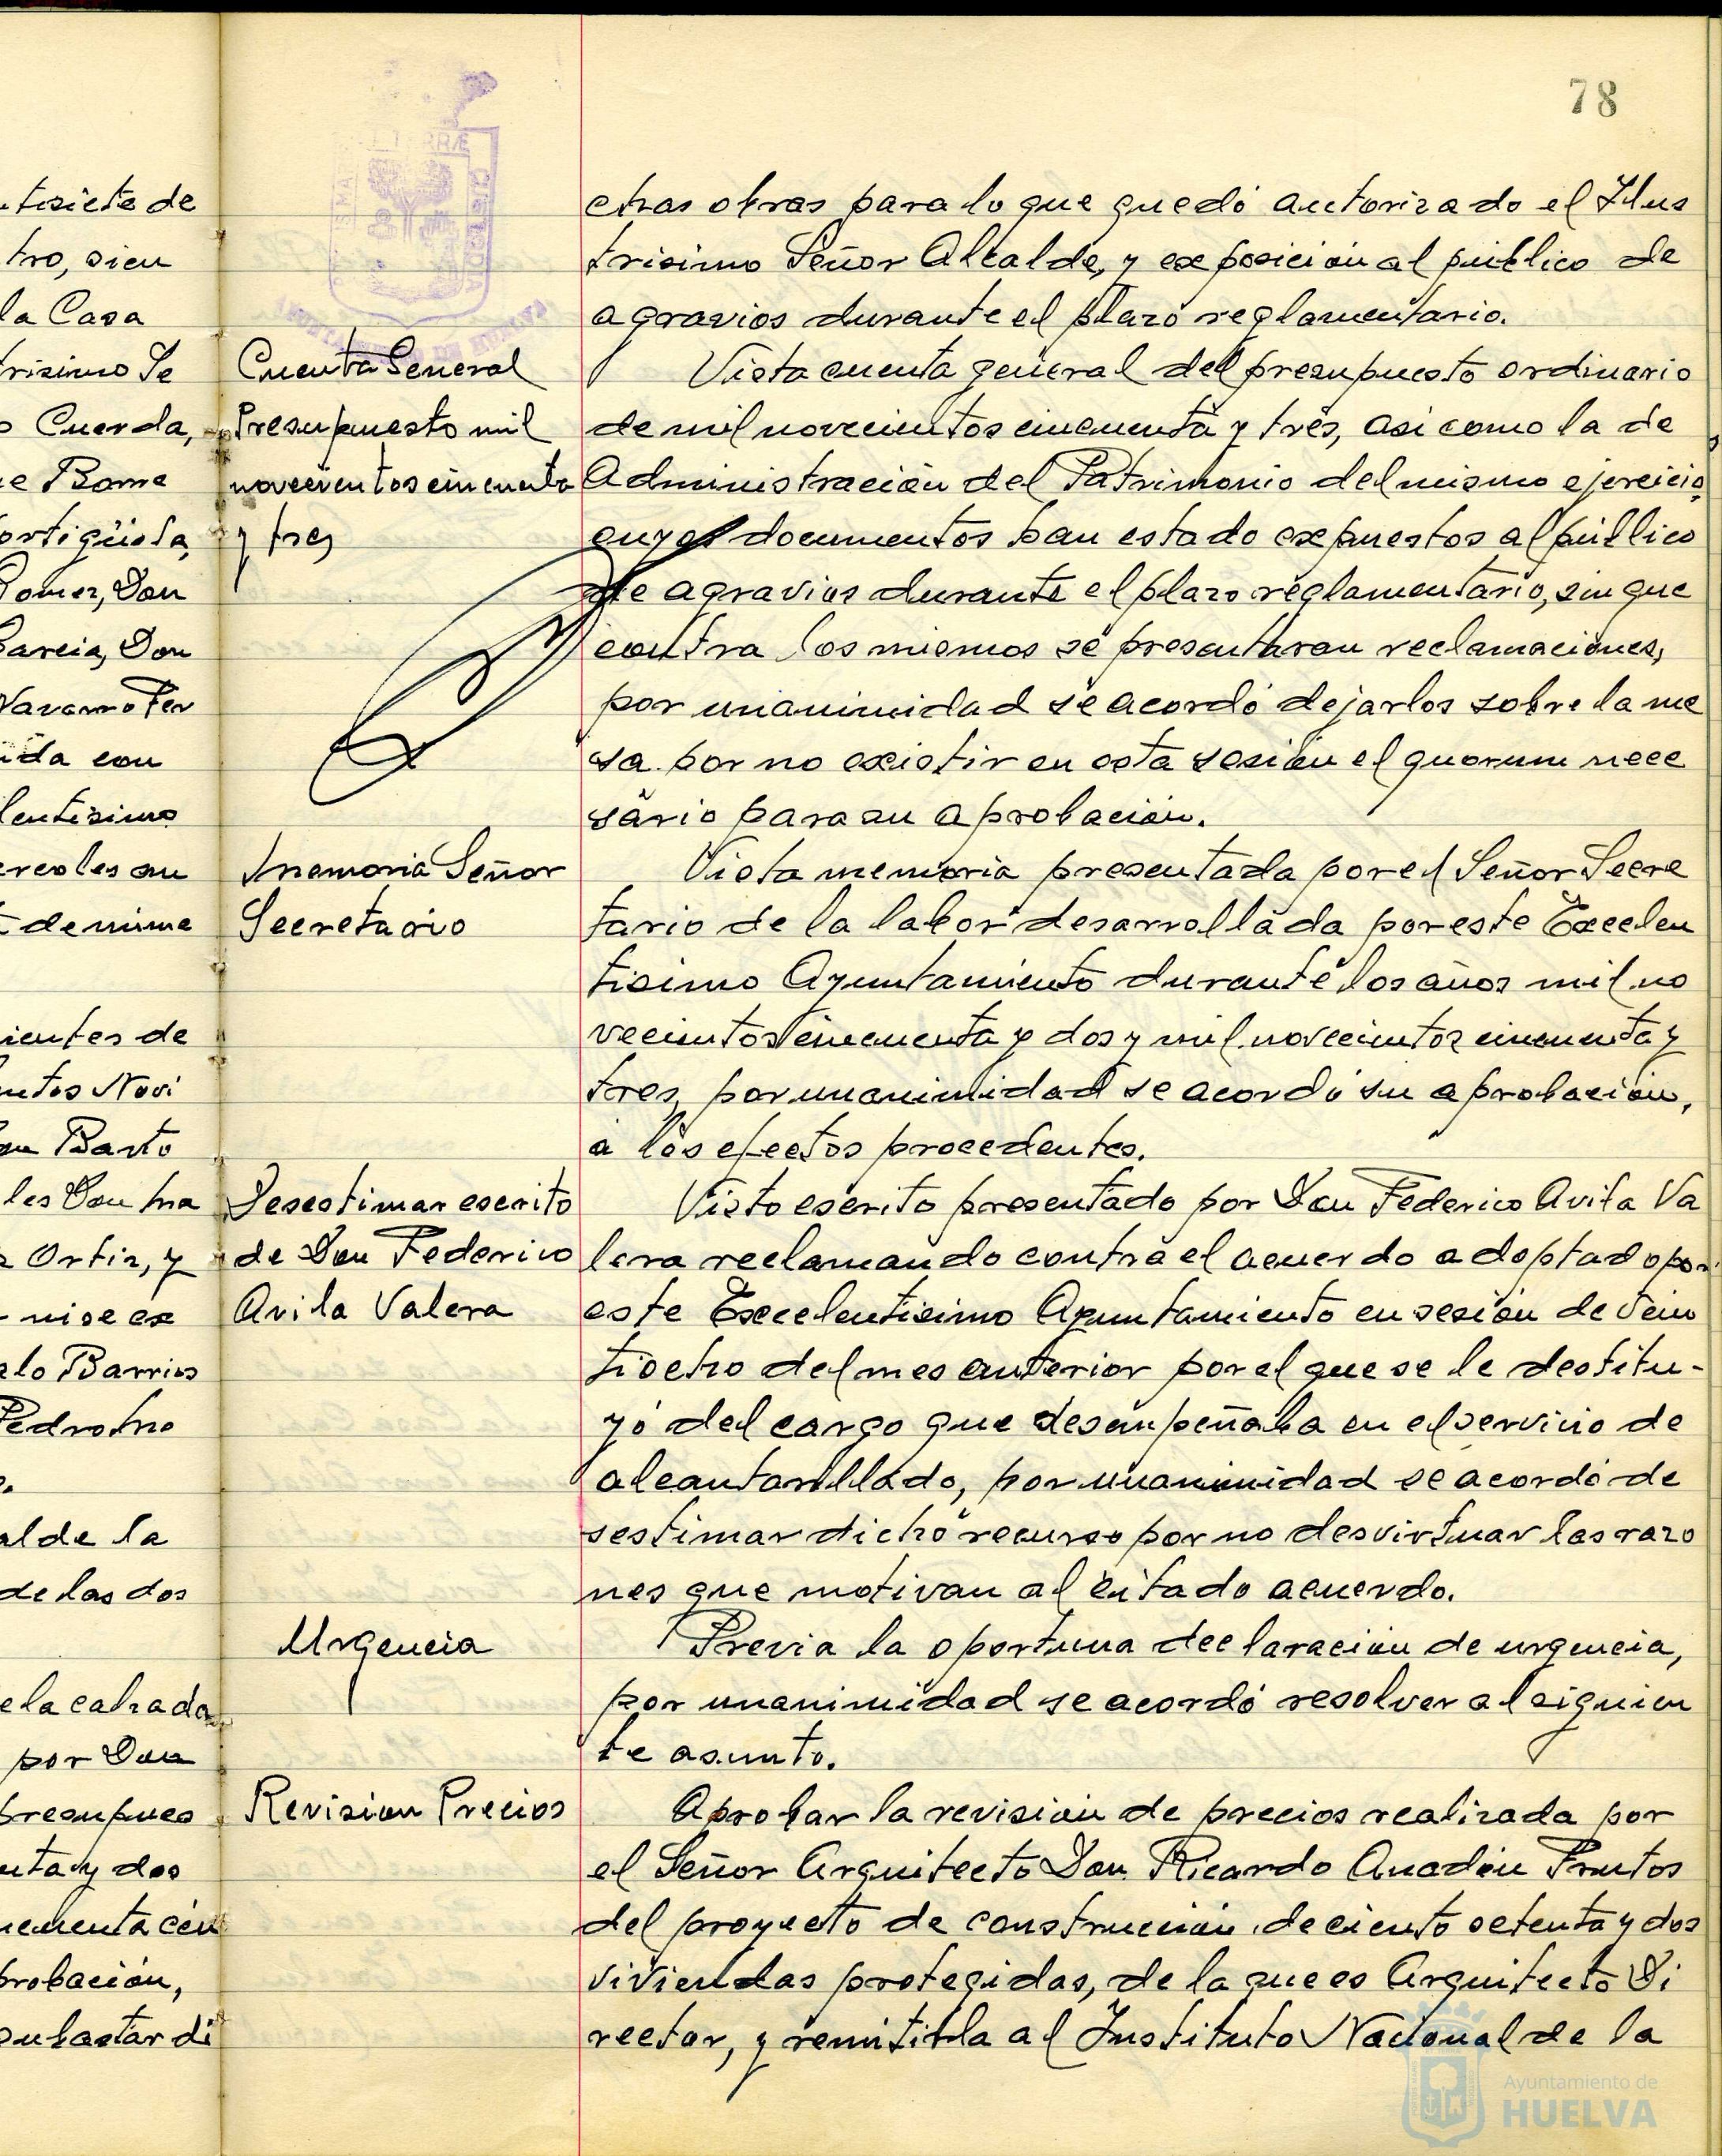 78
chas obras para lo que quedó autorizado el Ilus
trisimo Señor Alcalde, y exposición al público de
agravios durante el plazo reglamentario.
Cuenta General
Presupuesto mil
novecientos cincuenta
y tres
Vista cuenta general del presupuesto ordinario
de mil novecientos cincuenta y tres, asi como la de
Administración del Patrimonio del mismo ejercicio,
cuyos documentos han estado expuestos al público
de agravios durante el plazo reglamentario, sin que
contra los mismos se presentaran reclamaciones,
por unanimidad se acordó dejarlos sobre la me
sa por no existir en esta sesión el quorum nece
sario para su aprobación.
Memoria Señor
Secretario
Vista memoria presentada por el Señor Secre
tario de la labor desarrollada por este Excelen
tisimo Ayuntamiento durante los años mil no
vecientos cincuenta y dos y mil novecientos cincuenta y
tres, por unanimidad se acordó su aprobación,
a los efectos procedentes.
Desestimar escrito
de Don Federico
Avila Valera
Visto escrito presentado por Don Federico Avila Va
lera reclamando contra el acuerdo adoptado por
este Excelentisimo Ayuntamiento en sesión de vein
tiocho del mes anterior por el que se le destitu-
yó del cargo que desempeñaba en el servicio de
alcantarillado, por unanimidad se acordó de
sestimar dicho recurso por no desvirtuar las razo
nes que motivan al citado acuerdo.
Urgencia
Previa la oportuna declaración de urgencia,
por unanimidad se acordó resolver al siguien
te asunto.
Revision Precios
Aprobar la revisión de precios realizada por
el Señor Arquitecto Don Ricardo Anadón Frutos
del proyecto de construcción de ciento setenta y dos
viviendas protegidas, de la que es Arquitecto Di
rector, y remitirla al Instituto Nacional de la
tisiete de
tro, sien
la Casa
trisimo Se
Cuerda,
e Rome
ortigüela,
Gomez, Don
Garcia, Don
Navarro Fer
ida con
lentisimo
ercoles on
de nime
ientes de
ntos Novi
Barto
les Don Ma
Ortiz, y
ni se ex
lo Barrios
Pedro Mo
al de la
de las dos
e la calzada
por Don
presupues
nta y dos
cuenta cén
probación,
subastar di
Ayuntamiento de
HUELVA